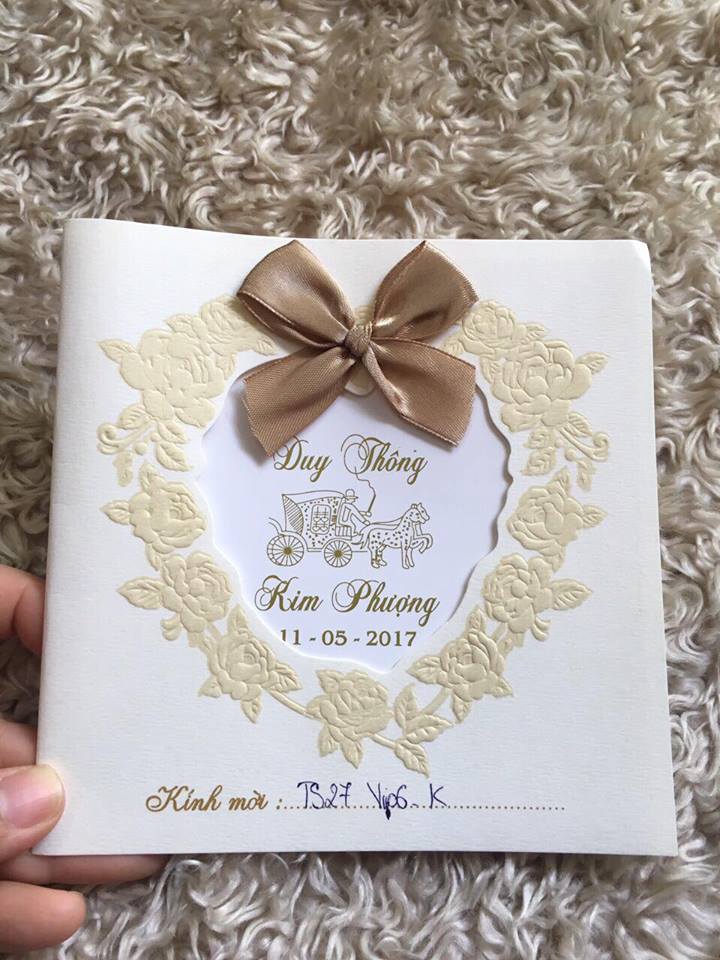 Duy Thông
Kim Phượng
11 - 05 - 2017
Kính mời : TS27 Vip6 - K